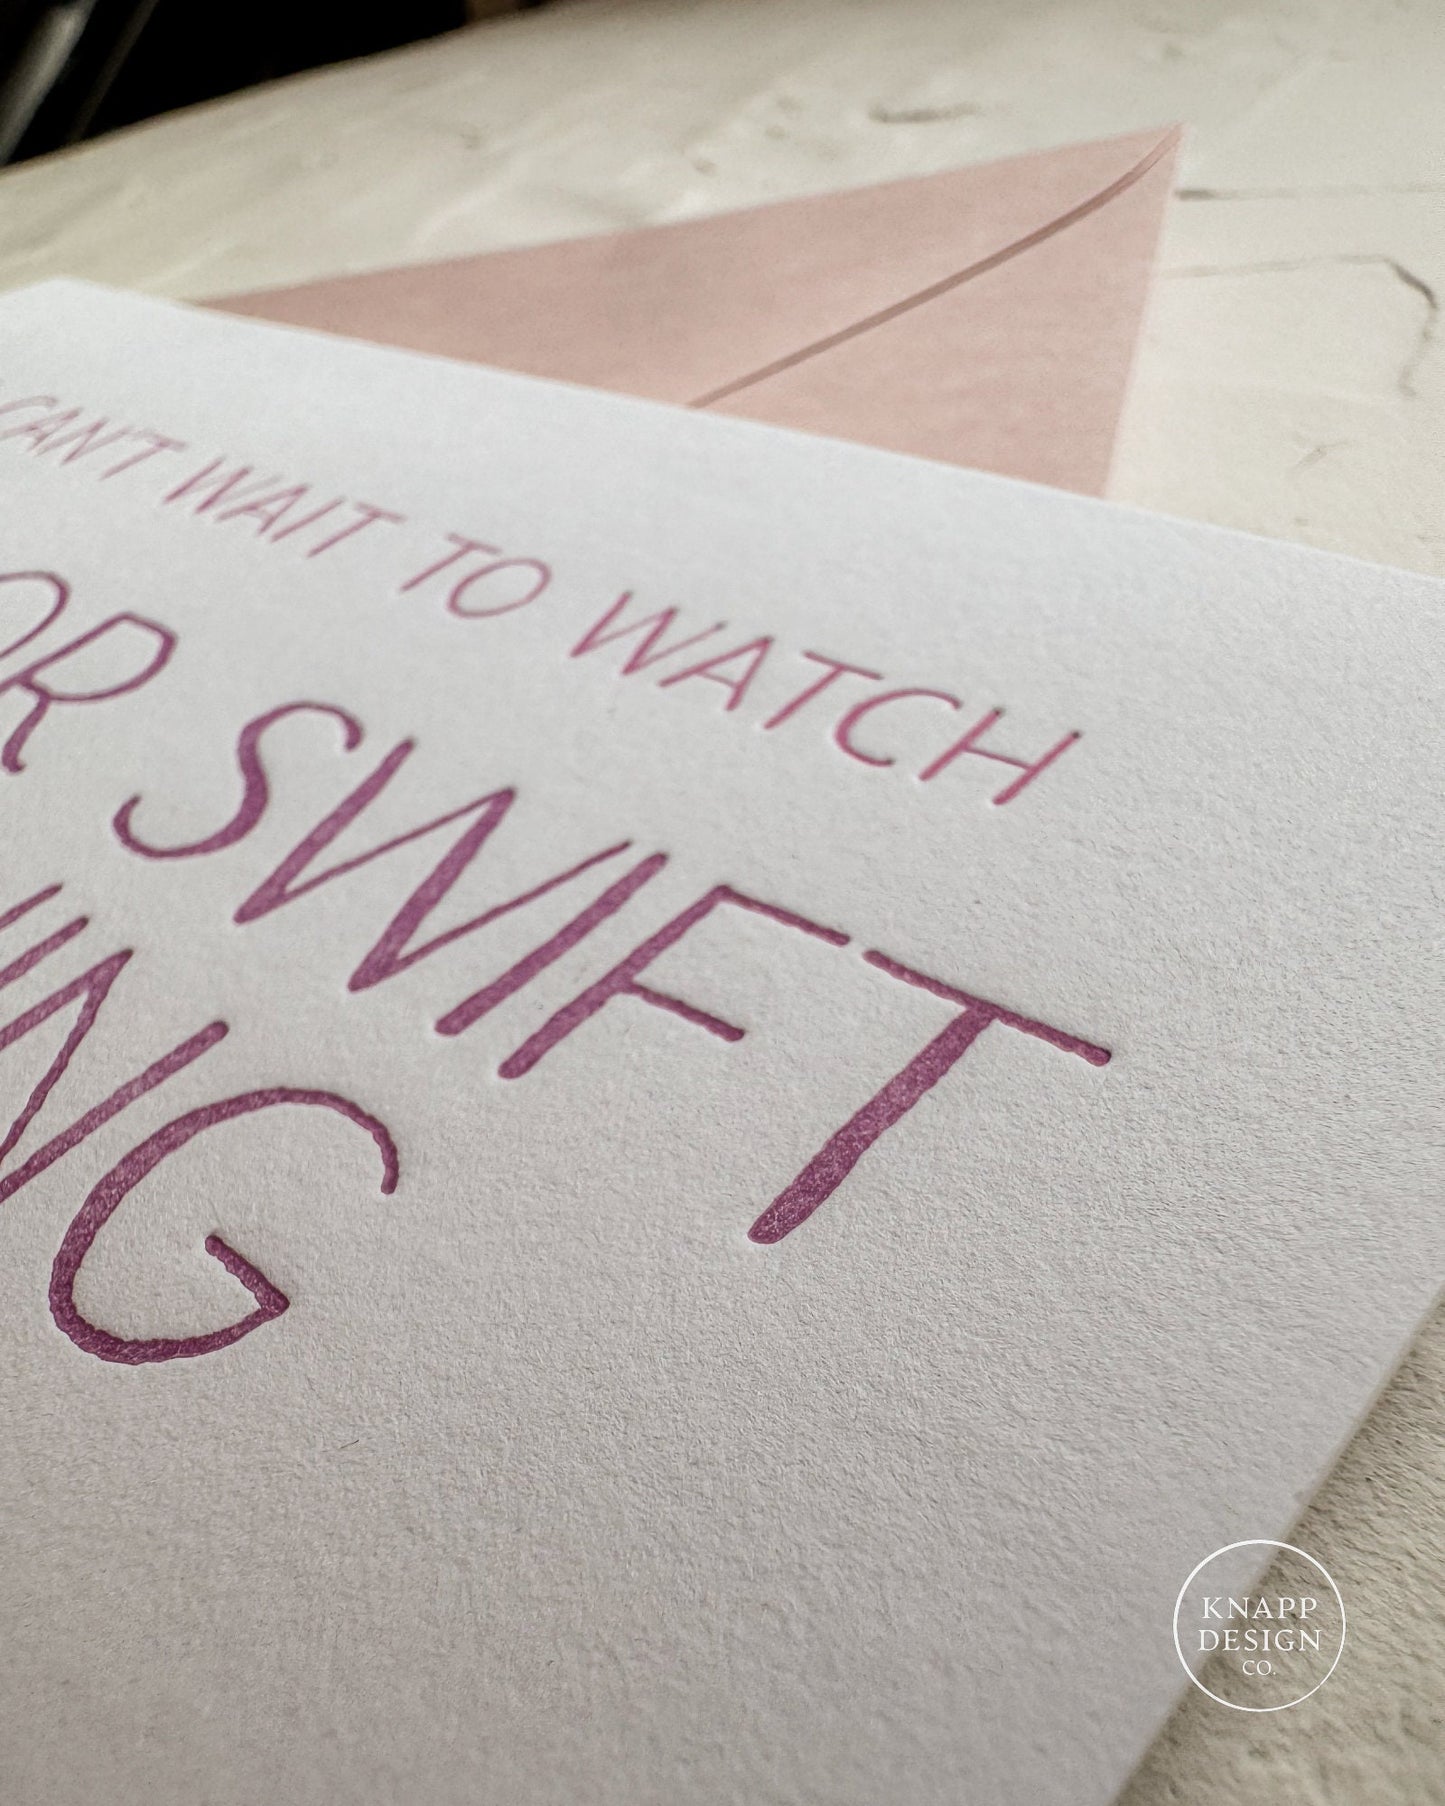 CAN'T WAIT TO WATCH
OR SWIFT
ING
KNAPP
DESIGN
CO.